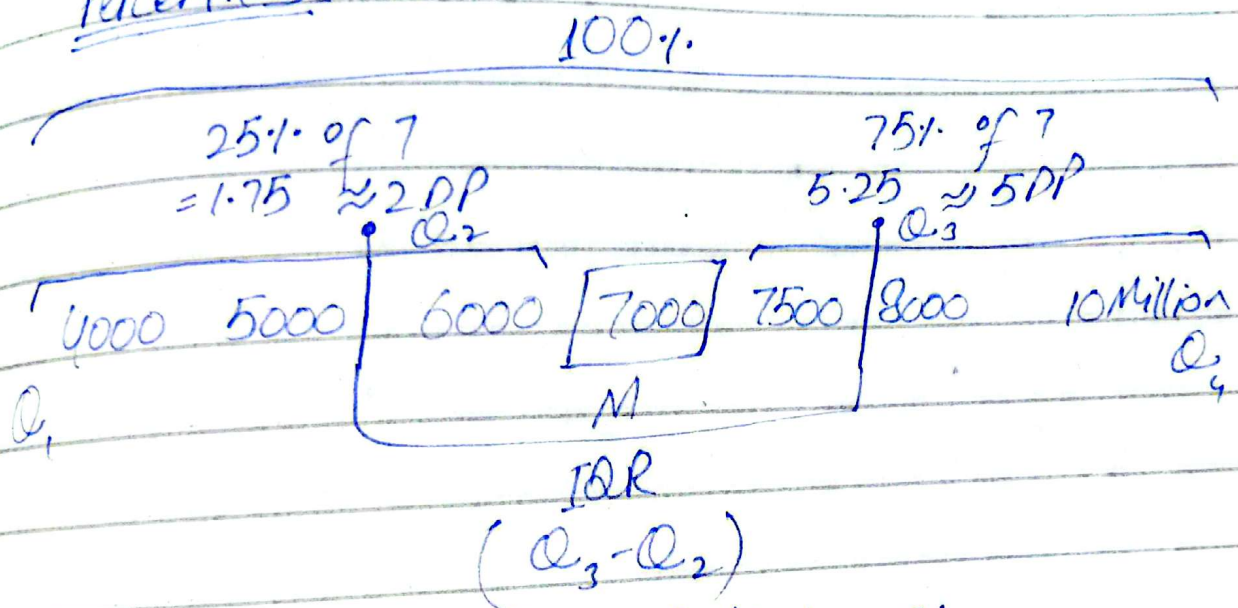 100%
25% of 7
75% of 7
= 1.75 ≈ 2 DP
5.25 ≈ 5 DP
Q2
Q3
4000 5000 6000 7000 7500 8000 10 Million
Q4
Q1
M
IQR
(Q3-Q2)